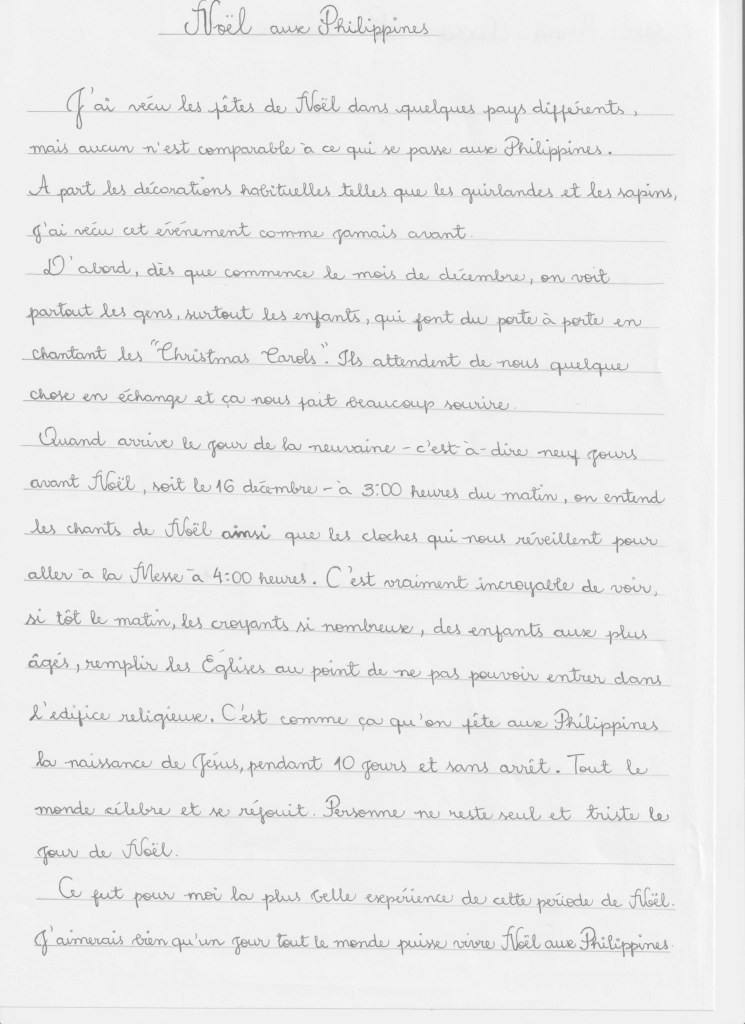 Noël aux Philippines
J'ai vécu les fêtes de Noël dans quelques pays différents,
mais aucun n'est comparable à ce qui se passe aux Philippines.
A part les décorations habituelles telles que les guirlandes et les sapins,
j'ai vécu cet événement comme jamais avant.
D'abord, dès que commence le mois de décembre, on voit
partout les gens, surtout les enfants, qui font du porte à porte en
chantant les "Christmas Carols". Ils attendent de nous quelque
chose en échange et ça nous fait beaucoup sourire.
Quand arrive le jour de la neuvaine - c'est-à-dire neuf jours
avant Noël, soit le 16 décembre - à 3:00 heures du matin, on entend
les chants de Noël ainsi que les cloches qui nous réveillent pour
aller à la Messe à 4:00 heures. C'est vraiment incroyable de voir,
si tôt le matin, les croyants si nombreux, des enfants aux plus
âgés, remplir les Églises au point de ne pas pouvoir entrer dans
l'edifice religieux. C'est comme ça qu'on fête aux Philippines
la naissance de Jésus, pendant 10 jours et sans arrêt. Tout le
monde célebre et se réjouit. Personne ne reste seul et triste le
jour de Noël.
Ce fut pour moi la plus belle expérience de cette période de Noël.
J'aimerais bien qu'un jour tout le monde puisse vivre Noël aux Philippines.